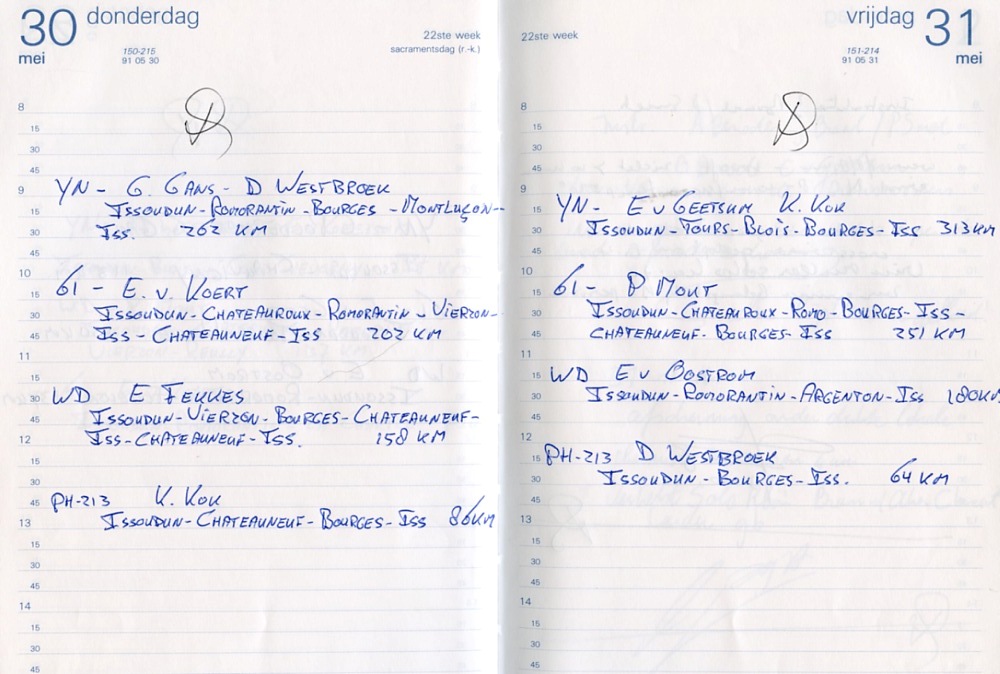 30 donderdag
mei
150-215
91 05 30
22ste week
sacramentsdag (r.-k.)
8
15
30
45
9 YN - G. GANS - D WESTBROEK
15 ISSOUDUN - ROMORANTIN - BOURGES - MONTLUÇON -
30 ISS. 262 KM
45
10
15 61 - E. v. KOERT
30 ISSOUDUN - CHATEAUROUX - ROMORANTIN - VIERZON -
45 ISS - CHATEAUNEUF - ISS 202 KM
11
15
30 WD E FEKKES
45 ISSOUDUN - VIERZON - BOURGES - CHATEAUNEUF -
12 ISS - CHATEAUNEUF - ISS. 158 KM
15
30
45 PH-213 K. KOK
13 ISSOUDUN - CHATEAUNEUF - BOURGES - ISS 86KM
15
30
45
14
15
30
45
vrijdag 31
mei
22ste week
151-214
91 05 31
8
15
30
45
9
15 YN - E v GEETSUM K. KOK
30 ISSOUDUN - TOURS - BLOIS - BOURGES - ISS 313KM
45
10
15 61 - P MOUT
30 ISSOUDUN - CHATEAUROUX - ROMO - BOURGES - ISS -
45 CHATEAUNEUF - BOURGES - ISS 251 KM
11
15 WD E v OOSTROM
30 ISSOUDUN - ROMORANTIN - ARGENTON - ISS 180KM
45
12
15 PH-213 D WESTBROEK
30 ISSOUDUN - BOURGES - ISS. 64 KM
45
13
15
30
45
14
15
30
45